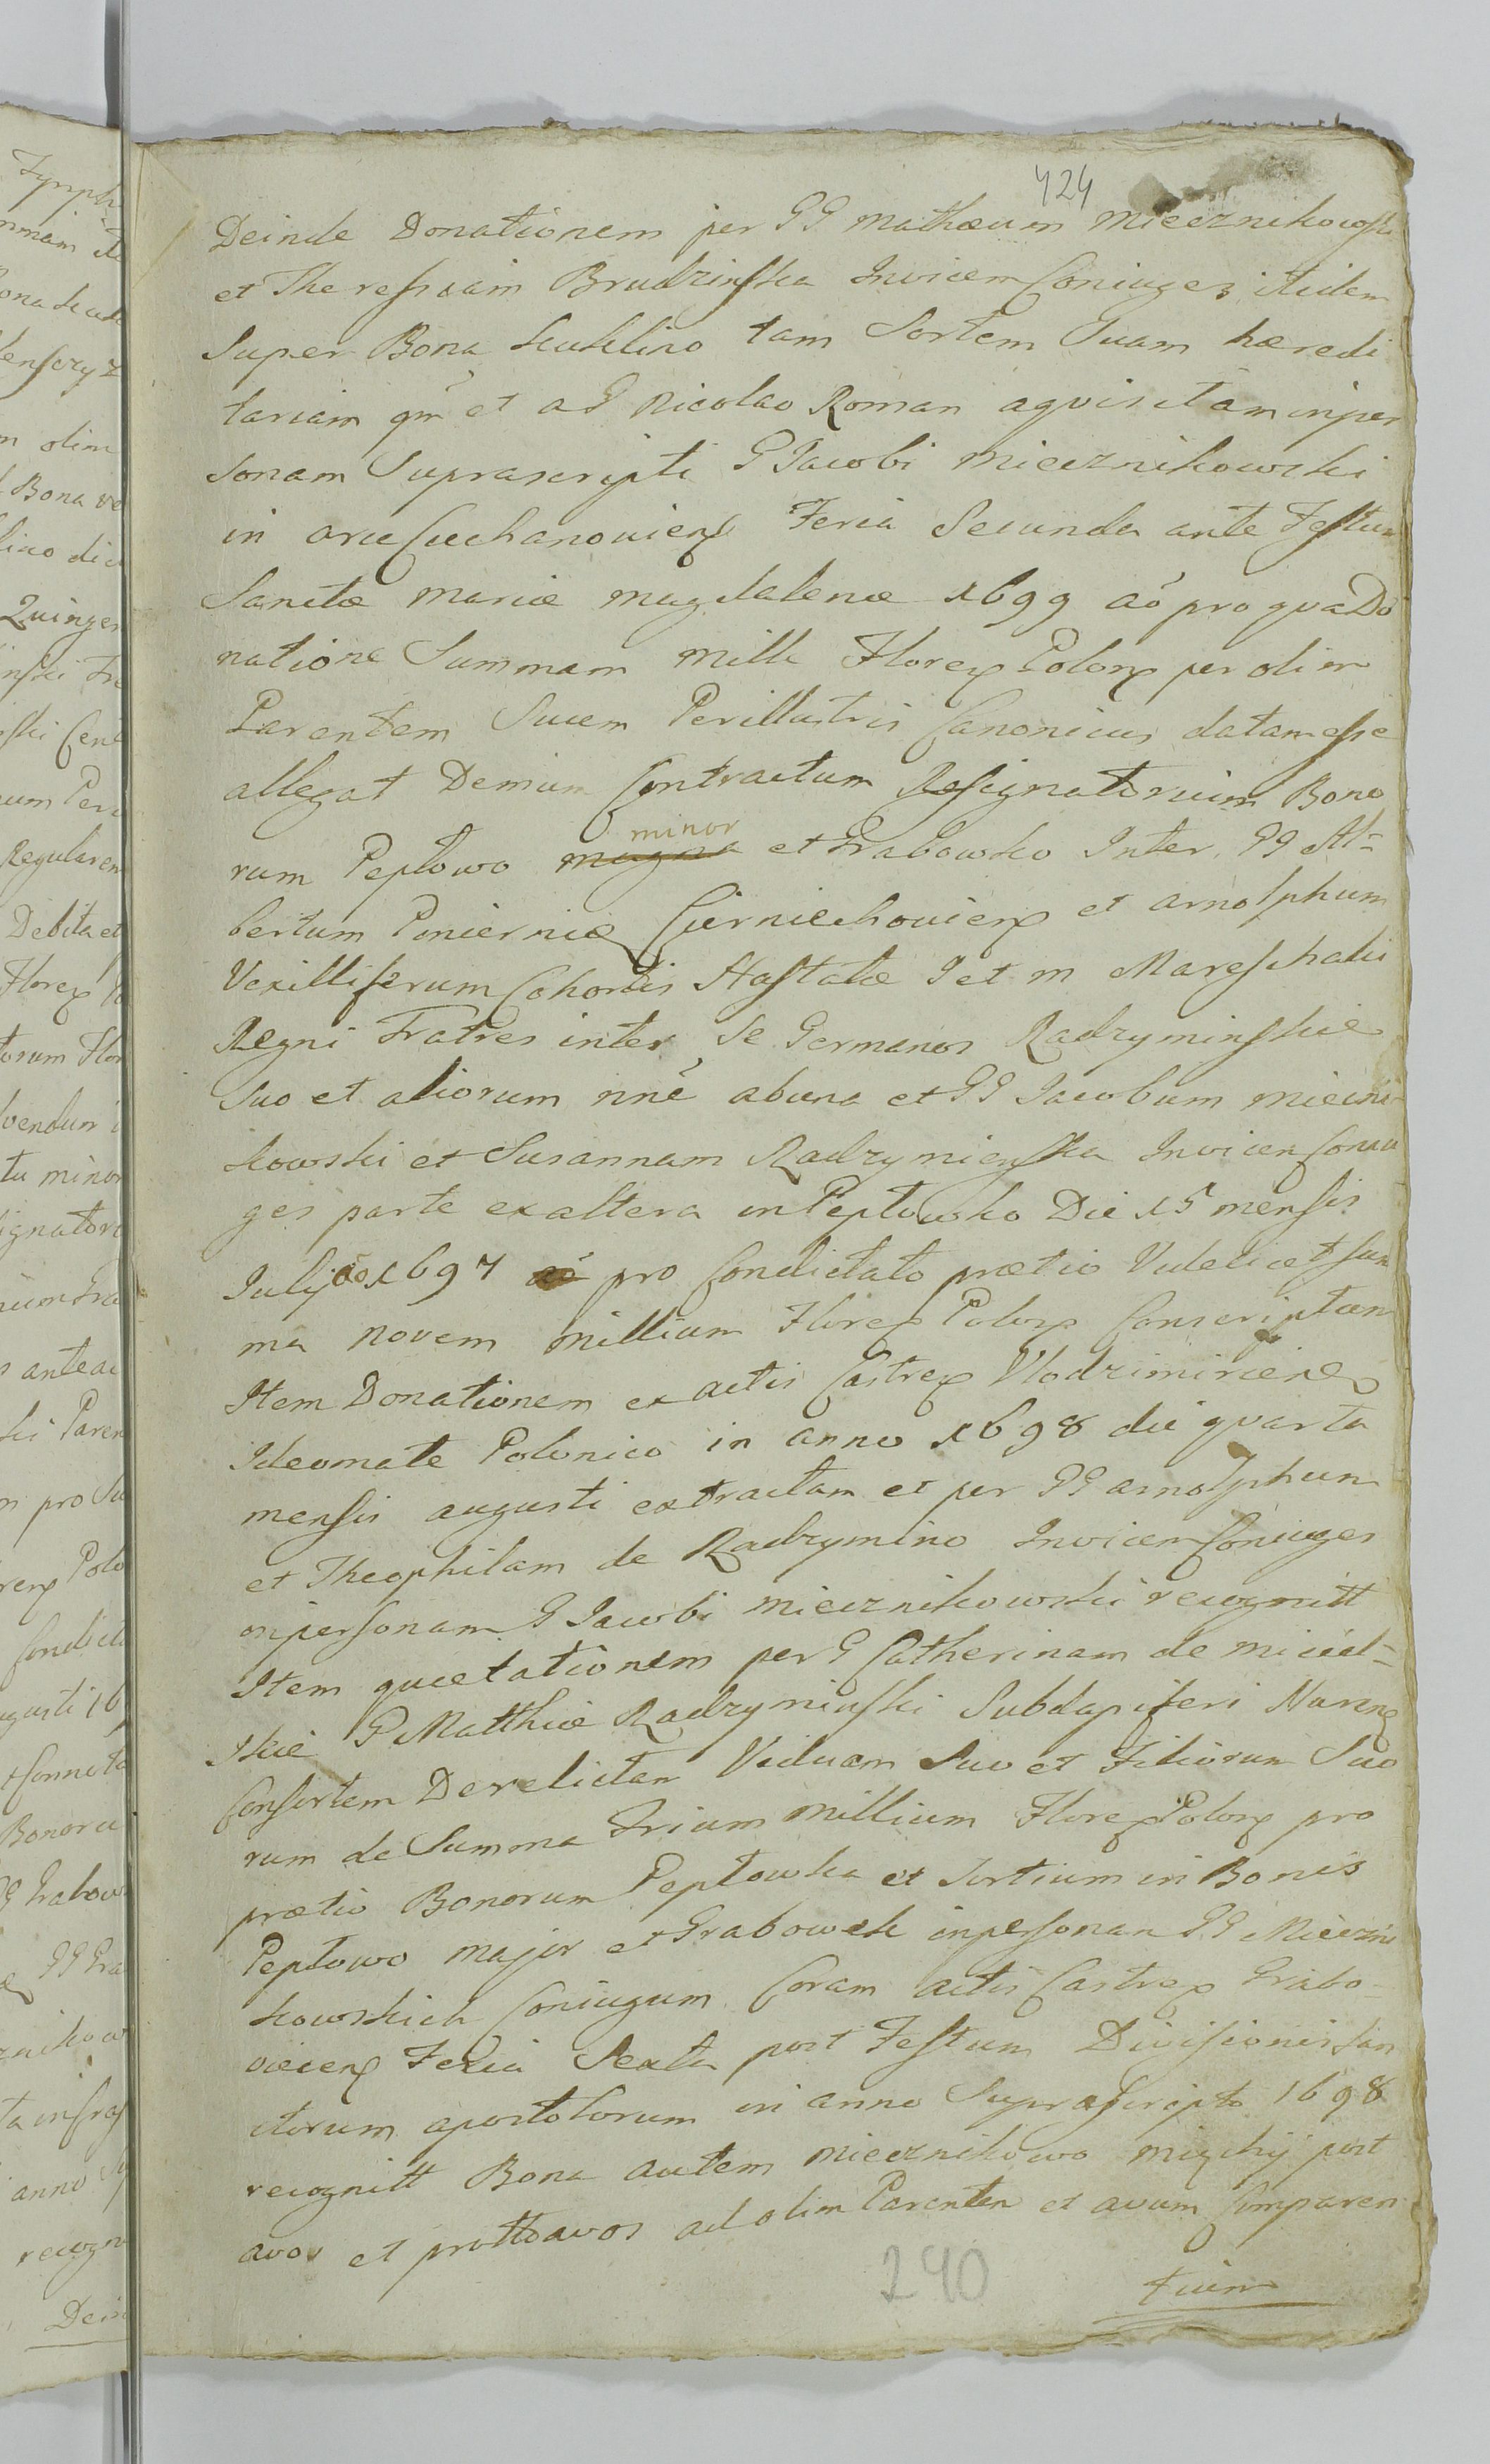 424
Deinde Donationem per GG Mathæum Miecznikowski
et Theressiam Brudzinska Invicem Coniuges itidem
Super Bona Kuklino tam Sortem Suam hæredi
tariam qm et a G Nicolao Roman aqvisitam in per
sonam Suprascripti G Iacobi Miecznikowski
in arce Ciechanoviens Feria Secunda ante Festum
Sanctæ Mariæ Magdalenæ 1699 aó pro qva Do
natione Summam Mille Floren Polon per olim
Parentem Suum Perillustris Canonicus datam esse
allegat Demum Contractum Resignatorium Bono
rum Peptowo minor et Grabowko Inter GG Al=
bertum Pincernæ Czerniechoviens et Arnolphum
Vexilliferum Cohortis Hastatæ I et M Mareschalci
Regni Fratres inter Se Germanos Radzyminskie
Suo et aliorum nné ab una et GG Iacobum Mieczni
kowski et Susannam Radzyminska Invicem Coniu
ges parte ex altera in Peptowko Die 15 mensis
Iulij aó 1697 pro Condictato prætio Videlicet Sum
ma Novem Millium Floren Polon Conscriptum
Item Donationem ex actis Castren Vlodzimiriens
Ideomate Polonico in anno 1698 die qvarta
mensis augusti extractam et per GG Arnolphum
et Theophilam de Radzymino Invicem Coniuges
in personam G Iacobi Miecznikowski recognitt
Item quietationem per G Catherinam de
G Matthiæ Radzyminski Subdapiferi Nurens
Consortem Derelictam Viduam Suo et Filiorum Suo
rum de Summa Trium Millium Floren Polon pro
prætio Bonorum Peptowka et Sortium in Bonis
Peptowo major et Grabowek in personam GG Mieczni
kowskich Coniugum Coram actis Castren Grabo=
vieiens Feria Sexta post Festum Divisionis San
ctorum apostolorum in anno Suprascripto 1698
recognitt Bona autem Miecznikowo post
avos et prottoavos ad olim Parentem et avum Comparen
tium
240